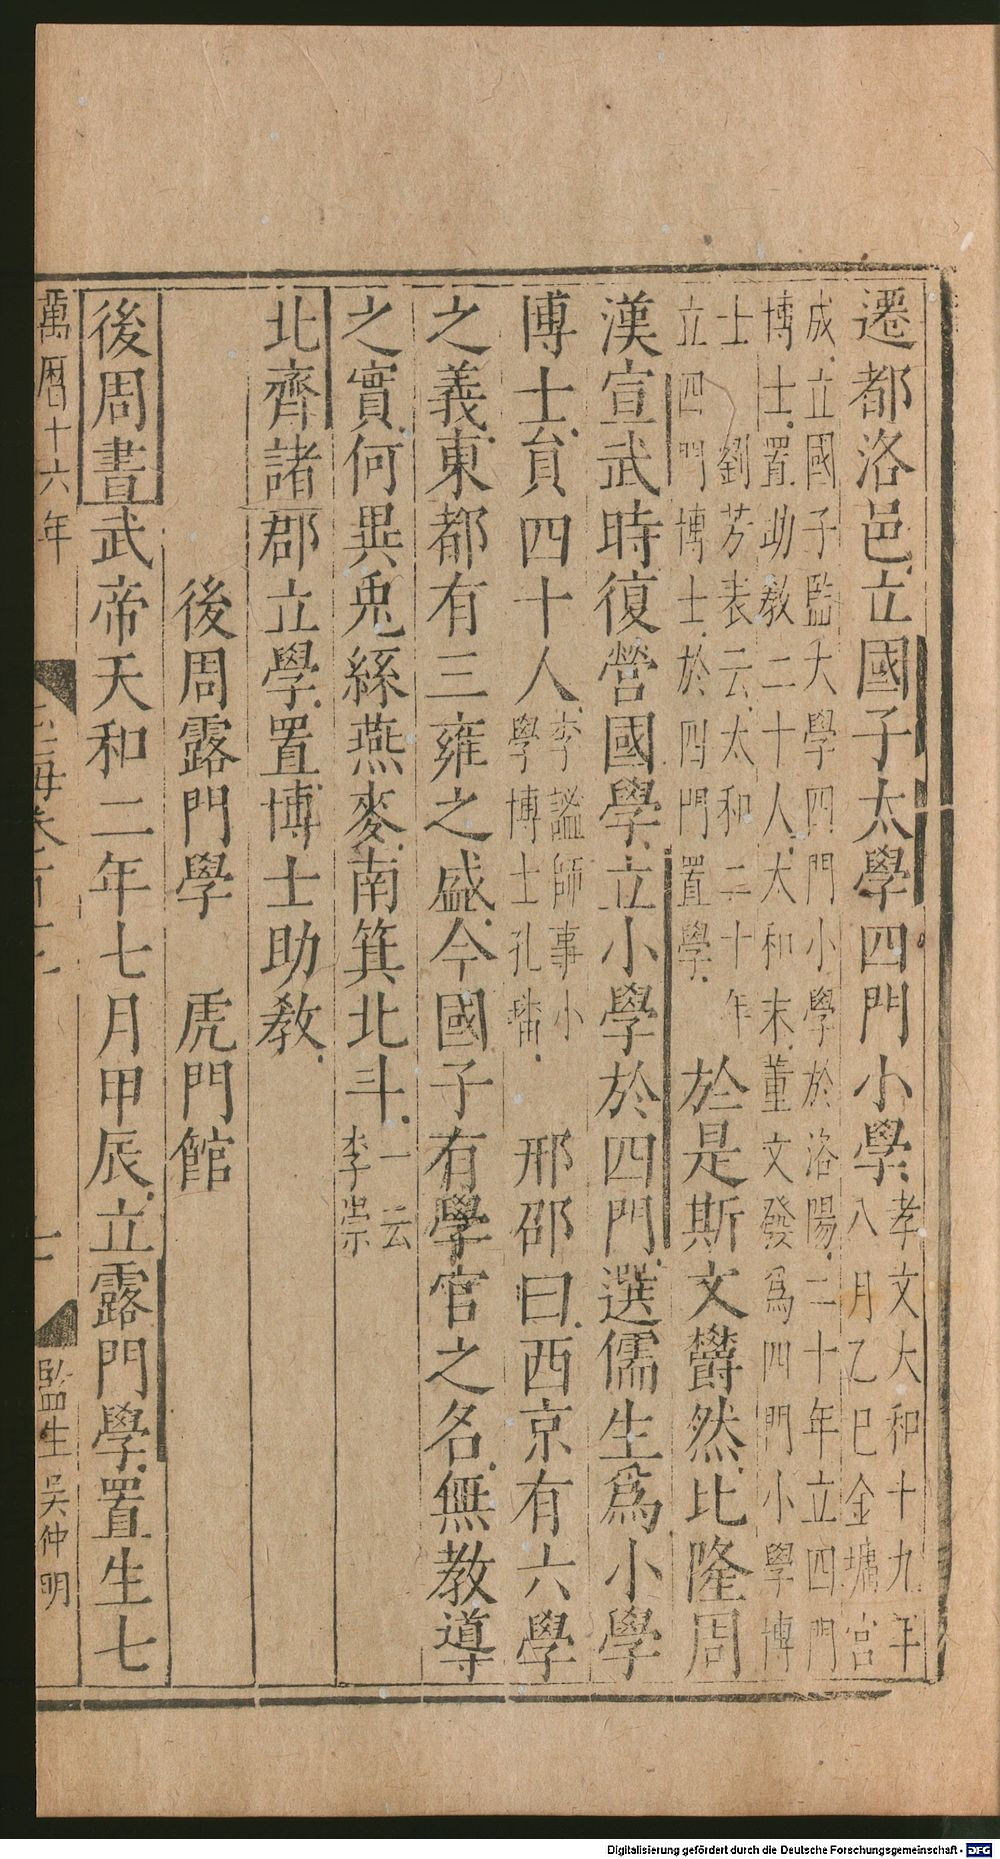 遷都洛邑立國子太學四門小學孝文大和十九年
八月乙巳金墉宮
成立國子監大學四門小學於洛陽二十年立四門
博士置助教二十人太和末董文發爲四門小學博
士 劉芳表云太和二十年
立四門博士於四門置學 於是斯文欝然比隆周
漢宣武時復營國學立小學於四門選儒生爲小學
博士員四十人李謐師事小
學博士孔璠 邢邵曰西京有六學
之義東都有三雍之盛今國子有學官之名無教導
之實何異兎絲燕麥南箕北斗一云
李崇
北齊諸郡立學置博士助教
後周露門學 虎門館
後周書武帝天和二年七月甲辰立露門學置生七
萬曆十六年
十一
監生吳仲明
Digitalisierung gefördert durch die Deutsche Forschungsgemeinschaft - DFG